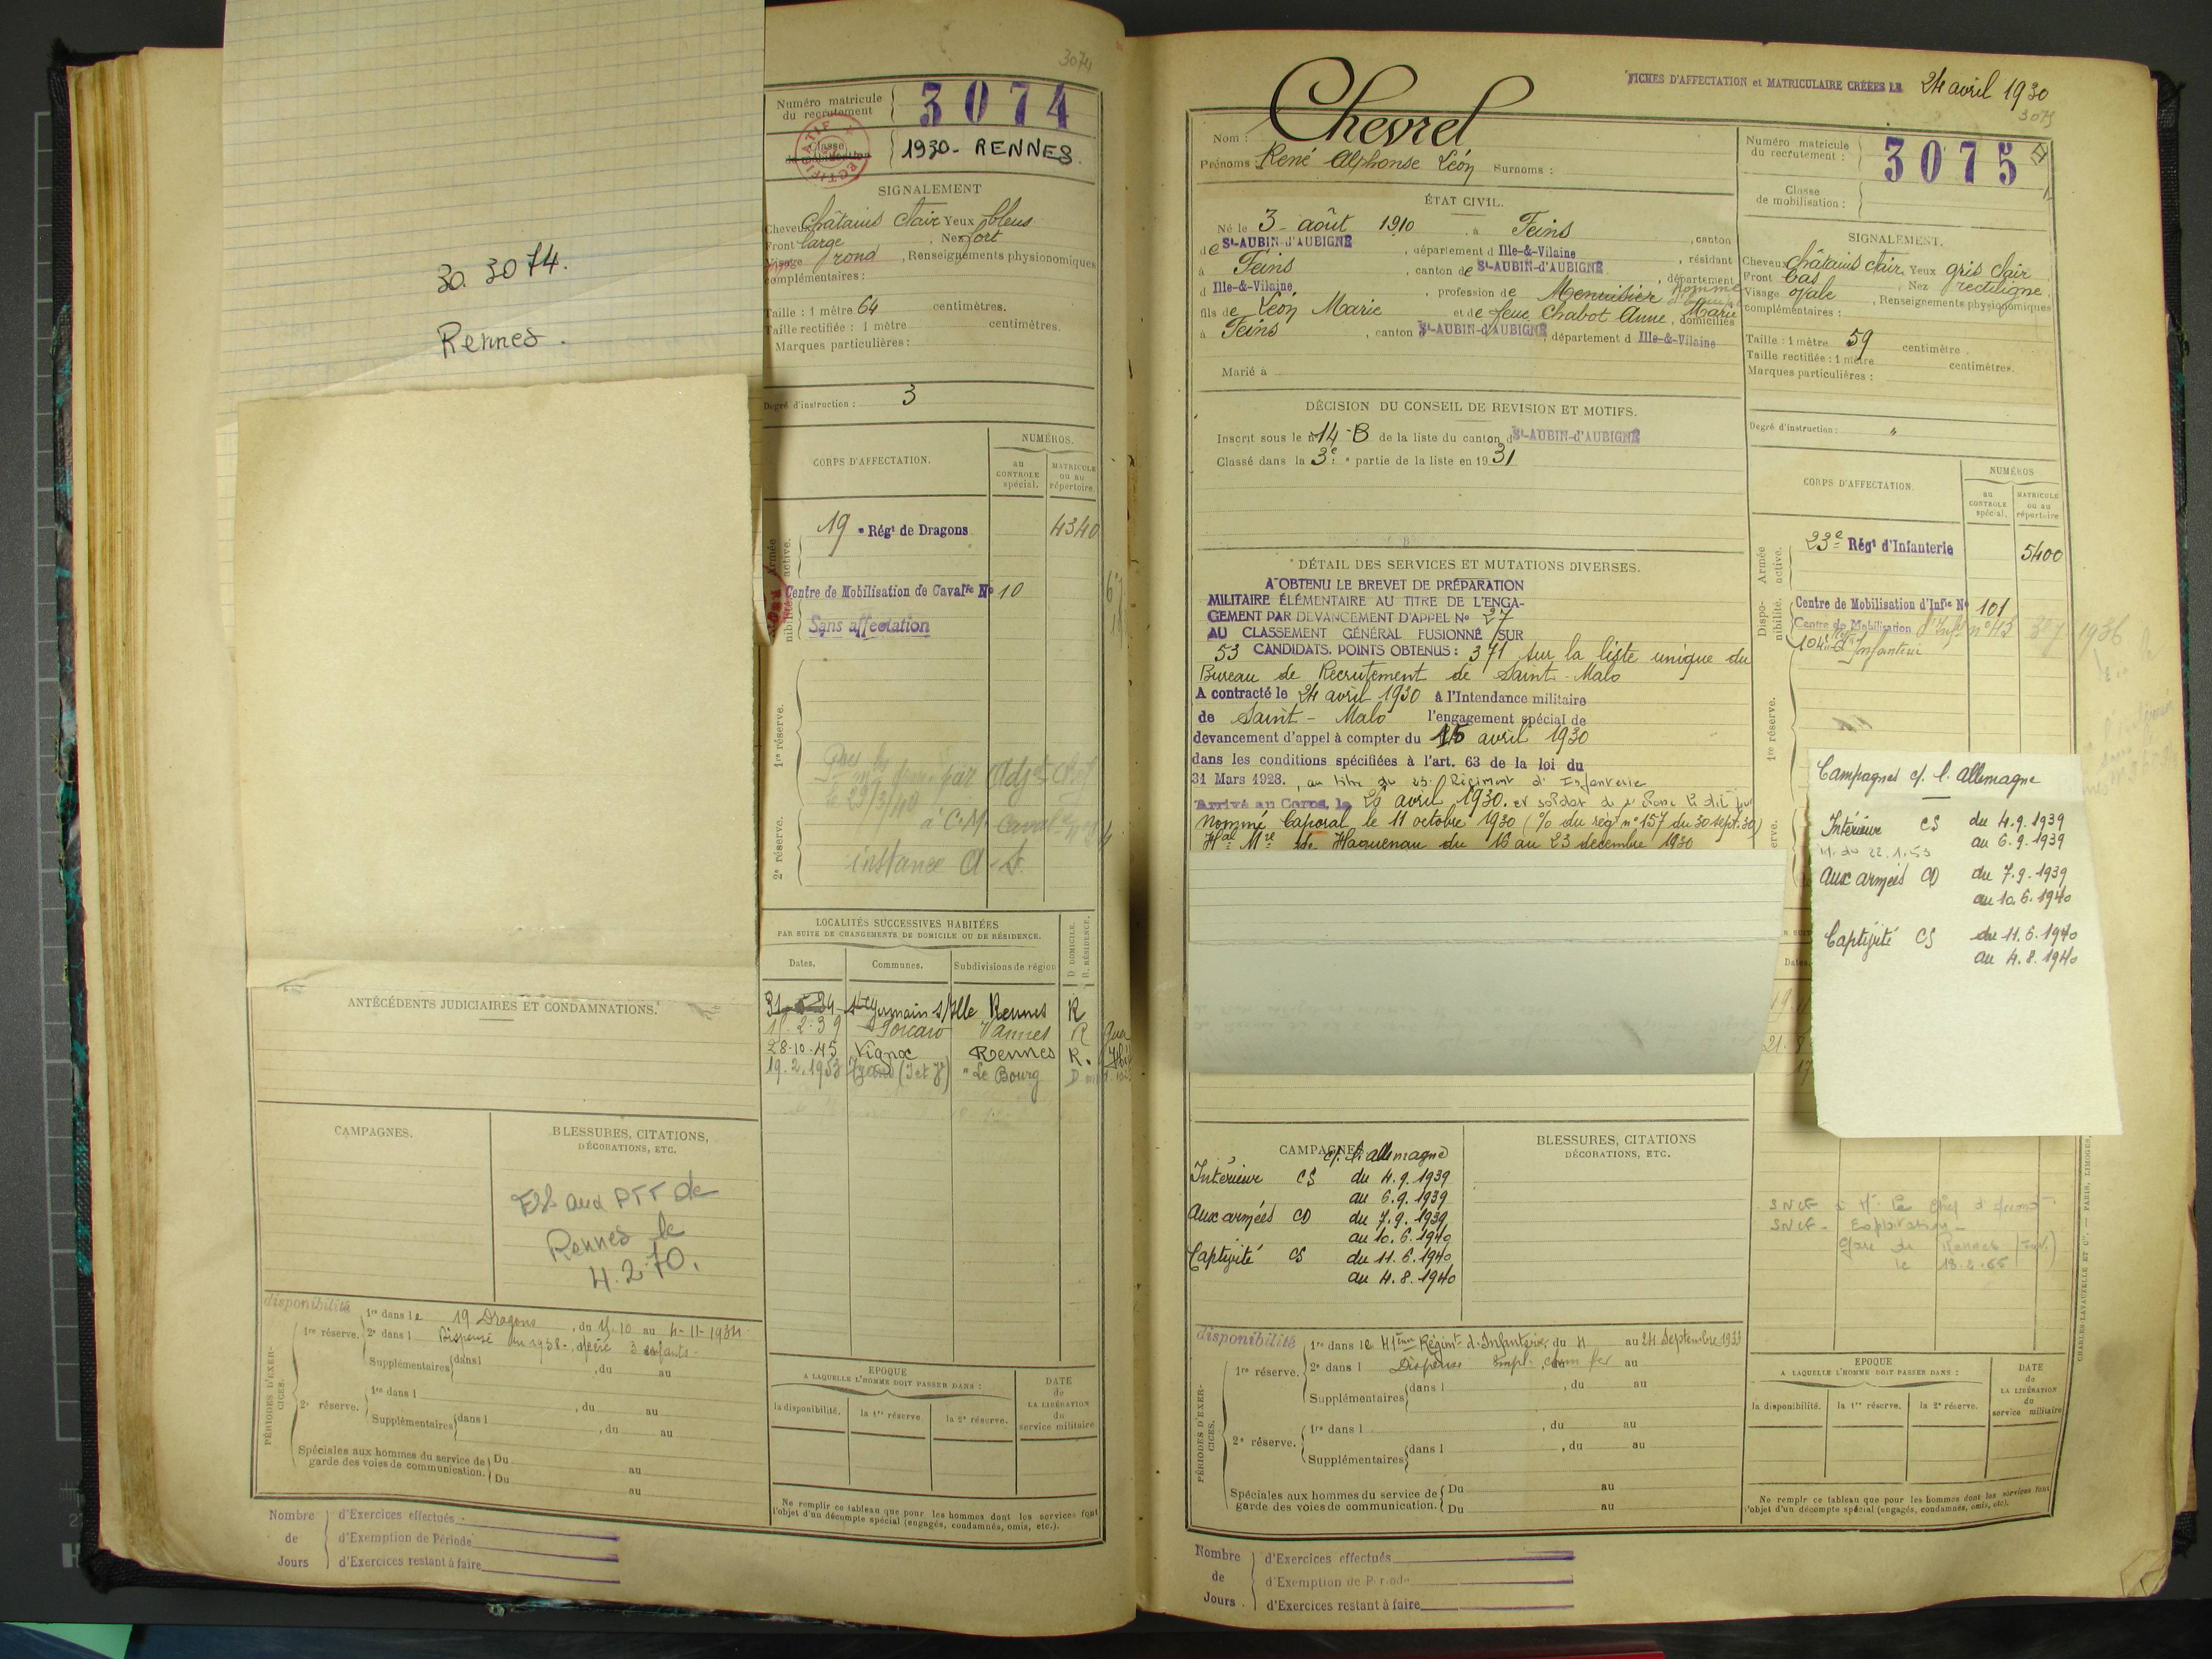 3074
Numéro matricule du recrutement
3074
Classe de mobilisation
1930 - RENNES.
SIGNALEMENT
Cheveux châtains clair Yeux bleus
Front large Nez fort
Visage rond, Renseignements physionomiques
complémentaires :
Taille : 1 mètre 64 centimètres.
Taille rectifiée : 1 mètre centimètres.
Marques particulières :
Degré d'instruction : 3
30. 3074.
Rennes.
CORPS D'AFFECTATION.
NUMÉROS.
au CONTROLE spécial.
MATRICULE ou au répertoire.
Armée active.
19e Régt de Dragons 4340
Centre de Mobilisation de Cavalie No 10
Sans affectation
1re réserve.
par Adjt Chef
le 29/3/40
à C.M. Caval
2e réserve.
instance A. S.
LOCALITÉS SUCCESSIVES HABITÉES
PAR SUITE DE CHANGEMENTS DE DOMICILE OU DE RÉSIDENCE.
Dates. Communes. Subdivisions de région D DOMICILE. R. RÉSIDENCE.
St Germain s/Ille Rennes R
2.39 Porcaro Vannes R
28-10-45 Vignoc Rennes R.
19.2.1953 (I et V) "Le Bourg D
ANTÉCÉDENTS JUDICIAIRES ET CONDAMNATIONS.
CAMPAGNES.
BLESSURES, CITATIONS,
DÉCORATIONS, ETC.
aux PTT de
Rennes le
4.2.70.
disponibilité
PÉRIODES D'EXERCICES.
1re réserve.
1re dans le 19 Dragons, du 15.10 au 4-11-1934
2e dans l Dispensé en 1938 - père 3 enfants -
Supplémentaires dans l , du au
2e réserve.
1re dans l , du au
Supplémentaires dans l , du au
Spéciales aux hommes du service de garde des voies de communication. Du au
Du au
EPOQUE
A LAQUELLE L'HOMME DOIT PASSER DANS :
la disponibilité. la 1re réserve. la 2e réserve.
DATE de LA LIBÉRATION du service militaire
Ne remplir ce tableau que pour les hommes dont les services font
l'objet d'un décompte spécial (engagés, condamnés, omis, etc.).
Nombre de Jours
d'Exercices effectués
d'Exemption de Période
d'Exercices restant à faire
FICHES D'AFFECTATION et MATRICULAIRE CRÉÉES LE 24 avril 1930
3075
Nom : Chevrel
Prénoms : René Alphonse Léon Surnoms :
Numéro matricule du recrutement : 3075
Classe de mobilisation :
ÉTAT CIVIL.
Né le 3 août 1910, à Feins, canton
de St-AUBIN-D'AUBIGNÉ, département d Ille-&-Vilaine, résidant
à Feins, canton de St-AUBIN-d'AUBIGNÉ, département
d Ille-&-Vilaine, profession de Menuisier homme d'équipe
fils de Léon Marie et de feue Chabot Anne, Marie, domiciliés
à Feins, canton St-AUBIN-d'AUBIGNÉ, département d Ille-&-Vilaine
Marié à
SIGNALEMENT.
Cheveux châtains clair, Yeux gris clair
Front bas Nez rectiligne,
Visage ovale, Renseignements physionomiques
complémentaires :
Taille : 1 mètre 59 centimètre
Taille rectifiée : 1 mètre centimètres.
Marques particulières :
Degré d'instruction : "
DÉCISION DU CONSEIL DE REVISION ET MOTIFS.
Inscrit sous le n° 14 - B de la liste du canton d St-AUBIN-d'AUBIGNÉ
Classé dans la 3e partie de la liste en 1931
DÉTAIL DES SERVICES ET MUTATIONS DIVERSES.
A OBTENU LE BREVET DE PRÉPARATION
MILITAIRE ÉLÉMENTAIRE AU TITRE DE L'ENGA-
GEMENT PAR DEVANCEMENT D'APPEL No 27
AU CLASSEMENT GÉNÉRAL FUSIONNÉ SUR
53 CANDIDATS. POINTS OBTENUS : 371 sur la liste unique du
Bureau de Recrutement de Saint-Malo
A contracté le 24 avril 1930 à l'Intendance militaire
de Saint-Malo l'engagement spécial de
devancement d'appel à compter du 15 avril 1930
dans les conditions spécifiées à l'art. 63 de la loi du
31 Mars 1928., au titre du 23e Régiment d'Infanterie
Arrivé au Corps, le avril 1930. et soldat de 2e classe le dit jour
nommé Caporal le 11 octobre 1930 (% du rég n° 157 du 30 sept. 30)
Hal Mre de Haguenau du 16 au 23 decembre 1930
CORPS D'AFFECTATION.
NUMÉROS
au CONTROLE spécial.
MATRICULE ou au répertoire
Armée active.
23e Régt d'Infanterie 5400
Disponibilité.
Centre de Mobilisation d'Infie No 101
Centre de Mobilisation d'Infie n°
104e Rt Infanterie
1936
1re réserve.
Campagnes c/. l'Allemagne
Intérieur CS du 4.9.1939
au 6.9.1939
22.1.53
Aux armées CD du 7.9.1939
au 10.6.1940
Captivité CS du 11.6.1940
au 4.8.1940
CAMPAGNES
c/. l'Allemagne
Intérieur CS du 4.9.1939
au 6.9.1939
Aux armées CD du 7.9.1939
au 10.6.1940
Captivité CS du 11.6.1940
au 4.8.1940
BLESSURES, CITATIONS
DÉCORATIONS, ETC.
SNCF
SNCF - Exploitation -
Gare de Rennes
le
disponibilité
PÉRIODES D'EXERCICES.
1re réserve.
1re dans le 41ème Régimt d'Infanterie, du 4 au 24 Septembre 1933
2e dans l Dispense Empl. chem fer au
Supplémentaires dans l , du au
2e réserve.
1re dans l , du au
Supplémentaires dans l , du au
Spéciales aux hommes du service de garde des voies de communication. Du au
Du au
EPOQUE
A LAQUELLE L'HOMME DOIT PASSER DANS :
la disponibilité. la 1re réserve. la 2e réserve.
DATE de LA LIBÉRATION du service militaire
Ne remplir ce tableau que pour les hommes dont les services font
l'objet d'un décompte spécial (engagés, condamnés, omis, etc).
CHARLES-LAVAUZELLE ET Cie. — PARIS, LIMOGES,
Nombre de Jours
d'Exercices effectués
d'Exemption de Période
d'Exercices restant à faire